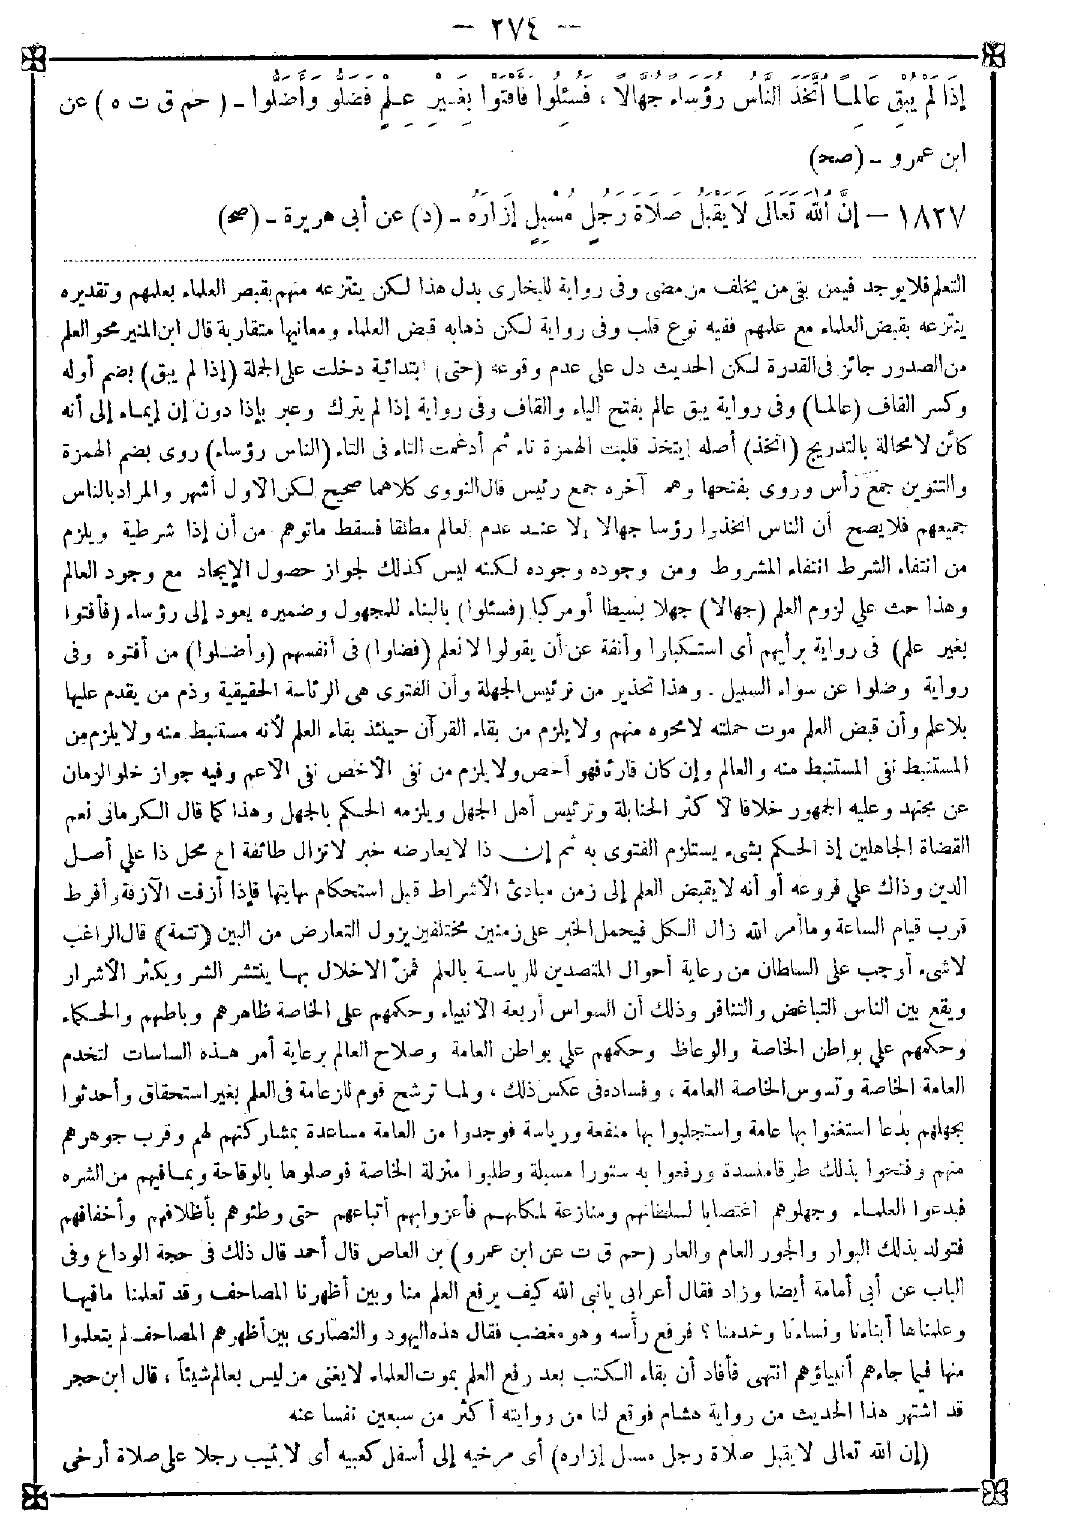 — ٢٧٤ —
إِذَا لَمْ يُبْقِ عَالِمًا اتَّخَذَ النَّاسُ رُؤَسَاءَ جُهَّالًا ، فَسُئِلُوا فَأَفْتَوْا بِغَيْرِ عِلْمٍ فَضَلُّوا وَأَضَلُّوا - ( حم ق ت ه ) عن
ابن عمرو - (صح)
١٨٢٧ - إِنَّ اللَّهَ تَعَالَى لَا يَقْبَلُ صَلَاةَ رَجُلٍ مُسْبِلٍ إِزَارَهُ - (د) عن أبى هريرة - (صح)
التعلم فلا يوجد فيمن بقى من يخلف من مضى وفى رواية للبخارى بدل هذا لكن ينتزعه منهم بقبض العلماء بعلمهم وتقديره
ينتزعه بقبض العلماء مع علمهم ففيه نوع قلب وفى رواية لكن ذهابه قبض العلماء ومعانيها متقاربة قال ابن المنير محو العلم
من الصدور جائز فى القدرة لكن الحديث دل على عدم وقوعه (حتى) ابتدائية دخلت على الجملة (إذا لم يبق) بضم أوله
وكسر القاف (عالما) وفى رواية يبق عالم بفتح الياء والقاف وفى رواية إذا لم يترك وعبر بإذا دون إن إيماء إلى أنه
كائن لامحالة بالتدريج (اتخذ) أصله ايتخذ قلبت الهمزة تاء ثم أدغمت التاء فى التاء (الناس رؤساء) روى بضم الهمزة
والتنوين جمع رأس وروى بفتحها وهمزة آخره جمع رئيس قال النووى كلاهما صحيح لكن الأول أشهر والمراد بالناس
جميعهم فلا يصح أن الناس اتخذوا رؤسا جهالا إلا عند عدم العالم مطلقا فسقط ماتوهم من أن إذا شرطية ويلزم
من انتفاء الشرط انتفاء المشروط ومن وجوده وجوده لكنه ليس كذلك لجواز حصول الإيجاد مع وجود العالم
وهذا حث على لزوم العلم (جهالا) جهلا بسيطا أو مركبا (فسئلوا) بالبناء للمجهول وضميره يعود إلى رؤساء (فأفتوا
بغير علم) فى رواية برأيهم أى استكبارا وأنفة عن أن يقولوا لا نعلم (فضلوا) فى أنفسهم (وأضلوا) من أفتوه وفى
رواية وضلوا عن سواء السبيل . وهذا تحذير من ترئيس الجهلة وأن الفتوى هى الرئاسة الحقيقية وذم من يقدم عليها
بلاعلم وأن قبض العلم موت حملته لامحوه منهم ولا يلزم من بقاء القرآن حينئذ بقاء العلم لأنه مستنبط منه ولا يلزم من
المستنبط نفى المستنبط منه والعالم وإن كان قارئا فهو أخص ولا يلزم من نفى الأخص نفى الأعم وفيه جواز خلو الزمان
عن مجتهد وعليه الجمهور خلافا لأكثر الحنابلة وترئيس أهل الجهل ويلزمه الحكم بالجهل وهذا كما قال الكرمانى نعم
القضاة الجاهلين إذ الحكم بشىء يستلزم الفتوى به ثم إن ذا لا يعارضه خبر لاتزال طائفة اع محل ذا على أصل
الدين وذاك على فروعه أو أنه لا يقبض العلم إلى زمن مبادئ الأشراط قبل استحكام نهايتها فإذا أزفت الآزفة وأفرط
قرب قيام الساعة وماأمر الله زال الكل فيحمل الخبر على زمنين مختلفين يزول التعارض من البين (تتمة) قال الراغب
لاشىء أوجب على السلطان من رعاية أحوال المتصدين للرياسة بالعلم فمن الاخلال بها ينتشر الشر ويكثر الأشرار
ويقع بين الناس التباغض والتنافر وذلك أن السواس أربعة الأنبياء وحكمهم على الخاصة ظاهرهم وباطنهم والحكماء
وحكمهم على بواطن الخاصة والوعاظ وحكمهم على بواطن العامة وصلاح العالم برعاية أمر هذه الساسات لتخدم
العامة الخاصة وتسوس الخاصة العامة ، وفساده فى عكس ذلك ، ولما ترشح قوم للزعامة فى العلم بغير استحقاق وأحدثوا
بجهلهم بدعا استغنوا بها عامة واستجلبوا بها منفعة ورياسة فوجدوا من العامة مساعدة بمشاركتهم لهم وقرب جوهرهم
منهم وفتحوا بذلك طرقا منسدة ورفعوا به ستورا مسبلة وطلبوا منزلة الخاصة فوصلوها بالوقاحة وبمافيهم من الشره
فبدعوا العلماء وجهلوهم اغتصابا لسلطانهم ومنازعة لمكانهم فأغروابهم أتباعهم حتى وطئوهم بأظلافهم وأخفافهم
فتولد بذلك البوار والجور العام والعار (حم ق ت عن ابن عمرو) بن العاص قال أحمد قال ذلك فى حجة الوداع وفى
الباب عن أبى أمامة أيضا وزاد فقال أعرابى يانبى الله كيف يرفع العلم منا وبين أظهرنا المصاحف وقد تعلمنا مافيها
وعلمناها أبناءنا ونساءنا وخدمنا ؟ فرفع رأسه وهو مغضب فقال هذه اليهود والنصارى بين أظهرهم المصاحف لم يتعلموا
منها فيما جاءهم أنبياؤهم انتهى فأفاد أن بقاء الكتب بعد رفع العلم بموت العلماء لايغنى من ليس بعالم شيئاً ، قال ابن حجر
قد اشتهر هذا الحديث من رواية هشام فوقع لنا من روايته أكثر من سبعين نفسا عنه
(إن الله تعالى لايقبل صلاة رجل مسبل إزاره) أى مرخيه إلى أسفل كعبيه أى لايثيب رجلا على صلاة أرخى